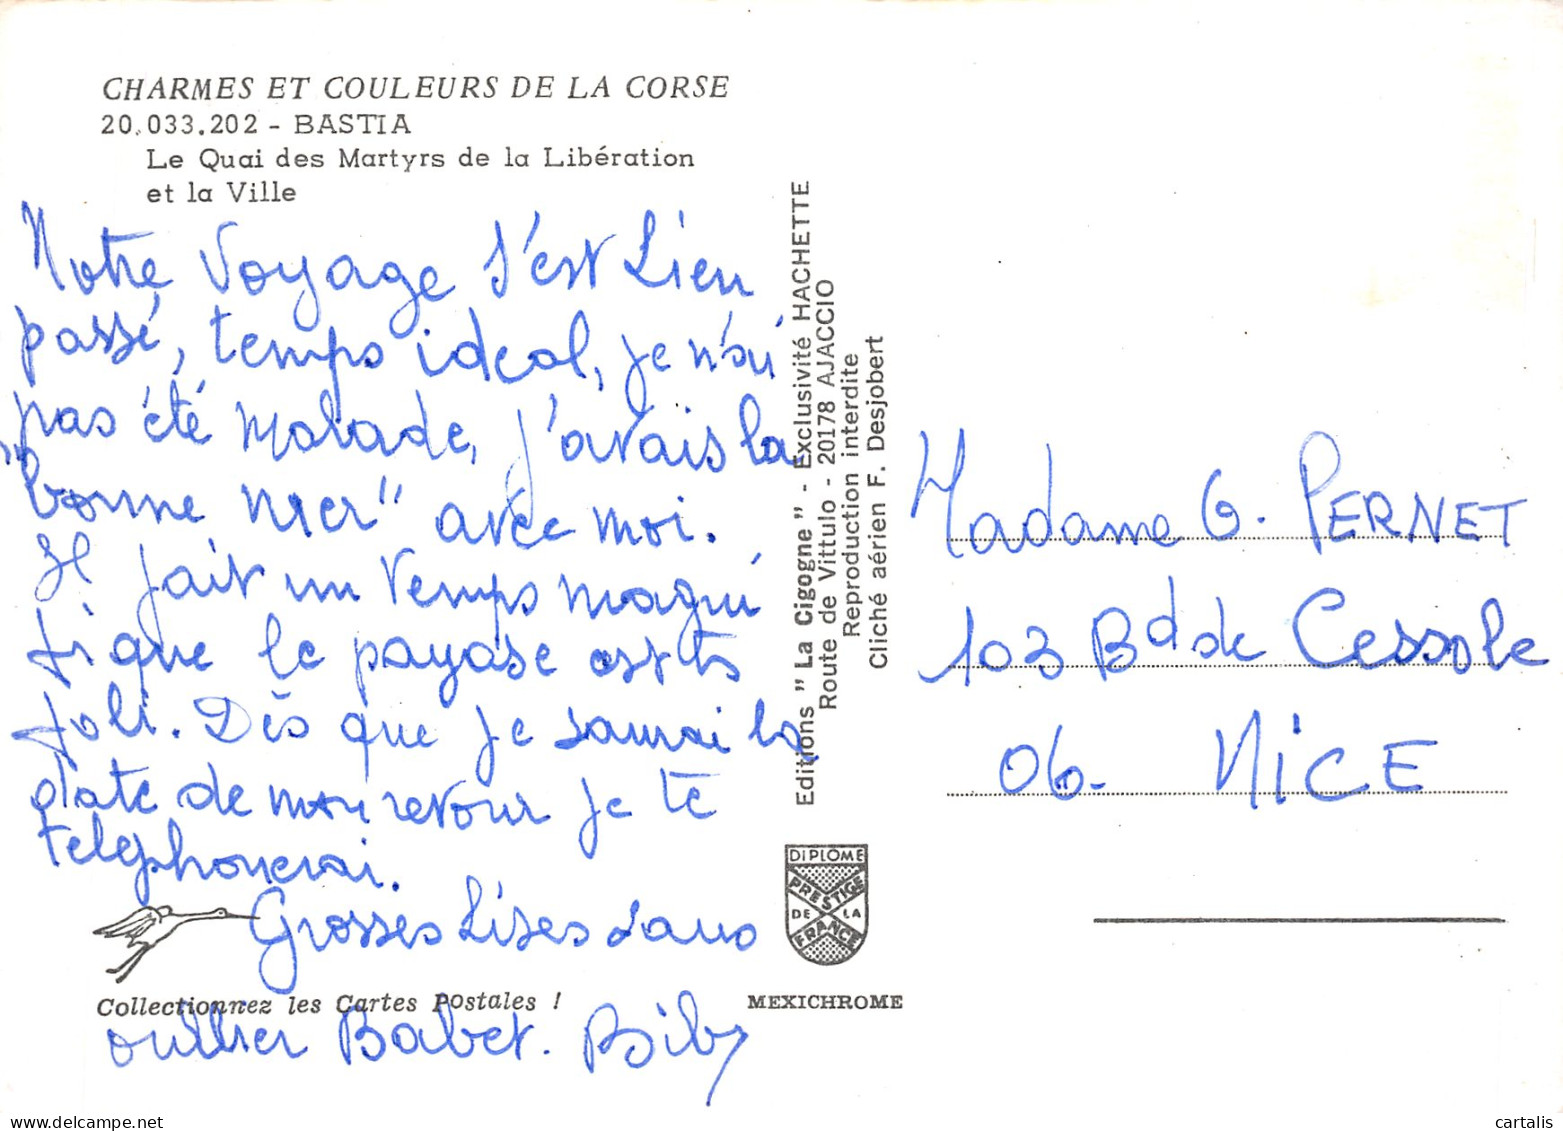 CHARMES ET COULEURS DE LA CORSE
20.033.202 - BASTIA
Le Quai des Martyrs de la Libération
et la Ville
Notre voyage s'est bien
passé, temps idéal, je n'ai
pas été malade, j'avais la
"bonne mer" avec moi.
Il fait un temps magni
fique le paysage est très
joli. Dès que je saurai la
date de mon retour je te
telephonerai.
Grosses bises sans
oublier Babet. Biby
Collectionnez les Cartes Postales !
Editions " La Cigogne " - Exclusivité HACHETTE
Route de Vittulo - 20178 AJACCIO
Reproduction interdite
Cliché aérien F. Desjobert
DIPLOME
PRESTIGE
DE LA
FRANCE
MEXICHROME
Madame G. PERNET
103 Bd de Cessole
06. NICE
cartalis